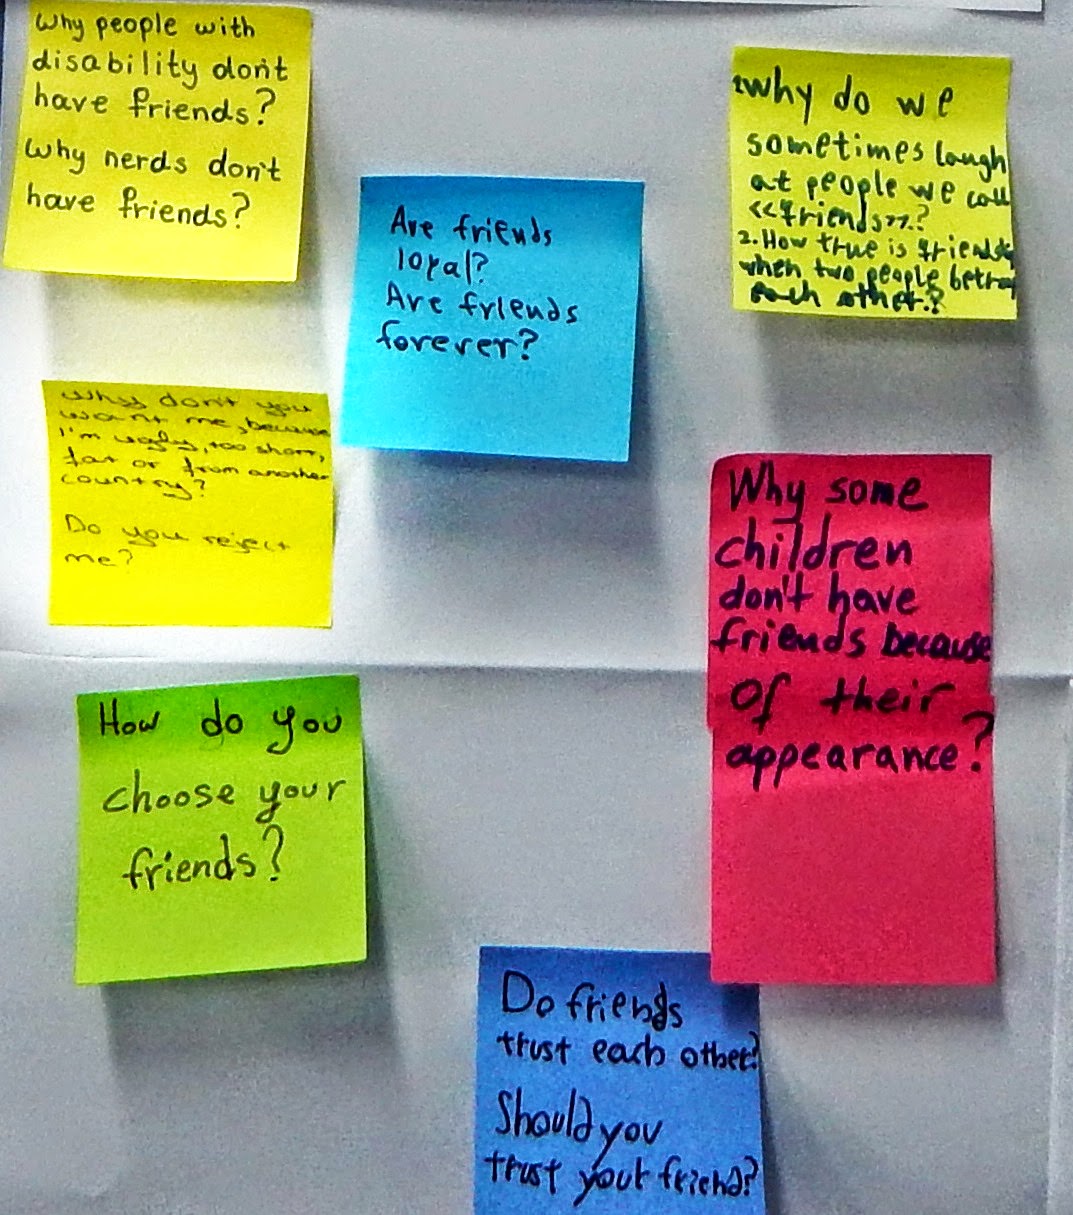 Why people with
disability don't
have friends?
Why nerds don't
have friends?
1.Why do we
sometimes laugh
at people we call
<<friends>>?
2.How true is
when two people betray
each other?
Are friends
loyal?
Are friends
forever?
Why don't you
want me, because
I'm ugly, too short,
fat or from another
country?
Do you reject
me?
Why some
children
don't have
friends because
of their
appearance?
How do you
choose your
friends?
Do friends
trust each other?
Should you
trust your friend?